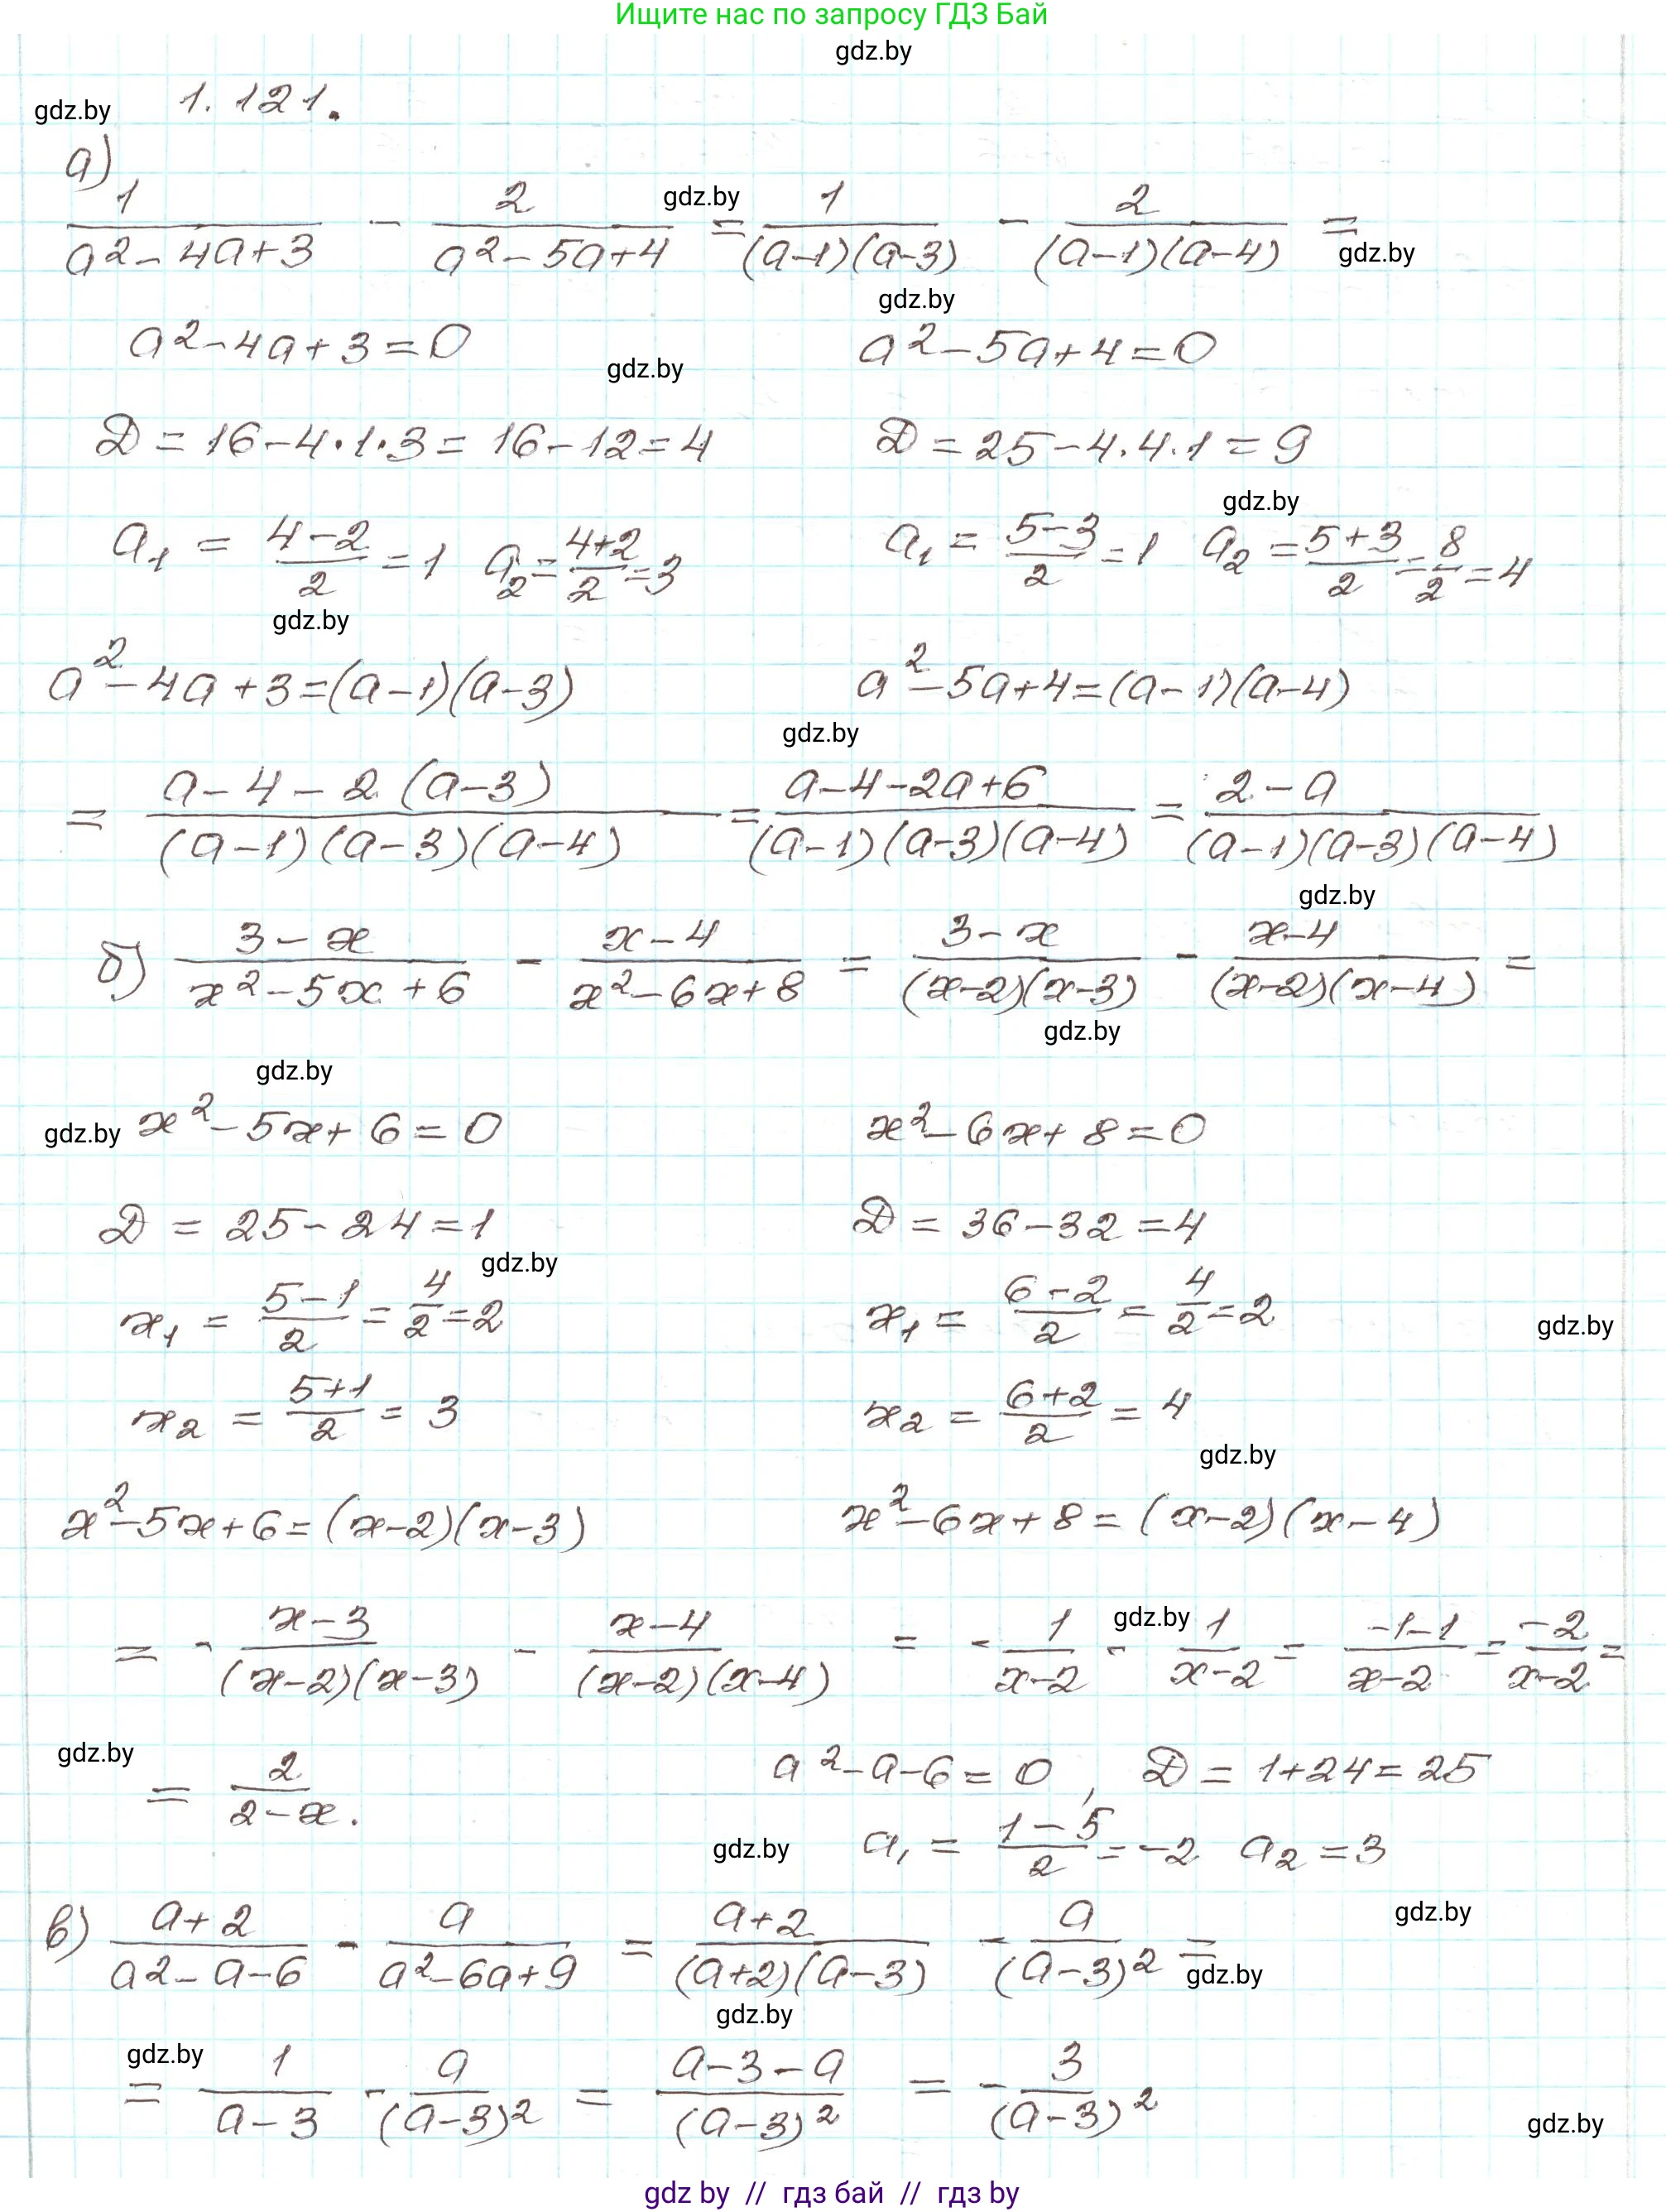 Ищите нас по запросу ГДЗ Бай
gdz.by
gdz.by 1.121.
а)
1/(a²-4a+3) - 2/(a²-5a+4) = 1/((a-1)(a-3)) - 2/((a-1)(a-4)) =
gdz.by
gdz.by
gdz.by
a²-4a+3=0 a²-5a+4=0
gdz.by
D=16-4·1·3=16-12=4 D=25-4·4·1=9
gdz.by
a₁=(4-2)/2=1 a₂=(4+2)/2=3 a₁=(5-3)/2=1 a₂=(5+3)/2=8/2=4
gdz.by
a²-4a+3=(a-1)(a-3) a²-5a+4=(a-1)(a-4)
gdz.by
= (a-4-2(a-3))/((a-1)(a-3)(a-4)) = (a-4-2a+6)/((a-1)(a-3)(a-4)) = (2-a)/((a-1)(a-3)(a-4))
gdz.by
б) (3-x)/(x²-5x+6) - (x-4)/(x²-6x+8) = (3-x)/((x-2)(x-3)) - (x-4)/((x-2)(x-4)) =
gdz.by
gdz.by
gdz.by x²-5x+6=0 x²-6x+8=0
D=25-24=1 D=36-32=4
gdz.by
x₁=(5-1)/2=4/2=2 x₁=(6-2)/2=4/2=2
gdz.by
x₂=(5+1)/2=3 x₂=(6+2)/2=4
gdz.by
x²-5x+6=(x-2)(x-3) x²-6x+8=(x-2)(x-4)
gdz.by
= -(x-3)/((x-2)(x-3)) - (x-4)/((x-2)(x-4)) = -1/(x-2) - 1/(x-2) = (-1-1)/(x-2) = -2/(x-2) =
gdz.by
= 2/(2-x). a²-a-6=0, D=1+24=25
gdz.by a₁=(1-5)/2=-2 a₂=3
gdz.by
в) (a+2)/(a²-a-6) - a/(a²-6a+9) = (a+2)/((a+2)(a-3)) - a/(a-3)² =
gdz.by
gdz.by
gdz.by
= 1/(a-3) - a/(a-3)² = (a-3-a)/(a-3)² = -3/(a-3)²
gdz.by
gdz by // гдз бай // гдз by